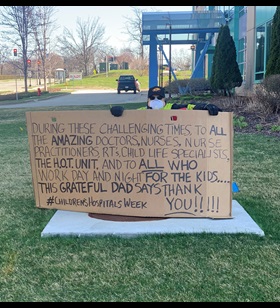 DURING THESE CHALLENGING TIMES TO ALL
THE AMAZING DOCTORS, NURSES, NURSE
PRACTITIONERS, RT'S, CHILD LIFE SPECIALISTS,
THE H.O.T. UNIT, AND TO ALL WHO
WORK DAY AND NIGHT FOR THE KIDS....
THIS GRATEFUL DAD SAYS THANK
#CHILDRENSHOSPITALSWEEK YOU!!!!!